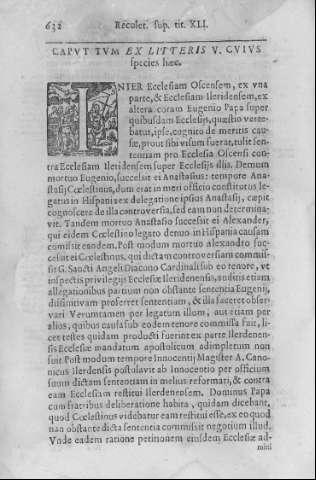 632 Recolet. sup. tit. XLI.
CAPVT TVM EX LITTERIS V. CVIUS
species hæc.
INTER Ecclesiam Oscensem, ex vna
parte, & Ecclesiam Ilerdensem, ex
altera coram Eugenio Papa super
quibusdam Ecclesijs, quæstio verte-
batur, ipse, cognito de meritis cau-
sæ, prout sibi visum fuerat, tulit sen-
tentiam pro Ecclesia Oscensi con-
tra Ecclesiam Ilerdensem super Ecclesijs illis. Demum
mortuo Eugenio, successit ei Anastasius: tempore Ana-
stasij Cœlestinus, dum erat in meri officio constitutus le-
gatus in Hispania ex delegatione ipsius Anastasij, cœpit
cognoscere de illa controuersia, sed eam non determina-
vit. Tandem mortuo Anastasio successit ei Alexander,
qui eidem Cœlestino legato denuo in Hispania causam
comissit eandem. Post modum mortuo alexandro suc-
cessit ei Cœlestinus, qui dictam controversiam commis-
sit G. Sancti Angeli Diacono Cardinali sub eo tenore, vt
inspectis privilegijs Ecclesiæ Ilerdenensis, auditis etiam
allegationibus partium non obstante sententia Eugenij,
diffinitivam proferret sententiam, & illa faceret obser-
vari Veruntamen per legatum illum, aut etiam per
alios, quibus causa sub eodem tenore commissa fuit, li-
cet testes quidam producti fuerint ex parte Ilerdenen-
sis Ecclesiæ mandatum apostolicum adimpletum non
fuit Post modum tempore Innocentij Magister A. Cano-
nicus Ilerdensis postulavit ab Innocentio per officium
suum dictam sententiam in melius reformari, & contra
eam Ecclesiam restitui Ilerdenensem. Dominus Papa
cum fratribus deliberatione habita, quidam dicebant,
quod Cœlestinus videbatur eam restituisse, ex eo quod
non obstante dicta sententia commissit negotium illud.
Vnde eadem ratione petitionem eiusdem Ecclesiæ ad-
mitti